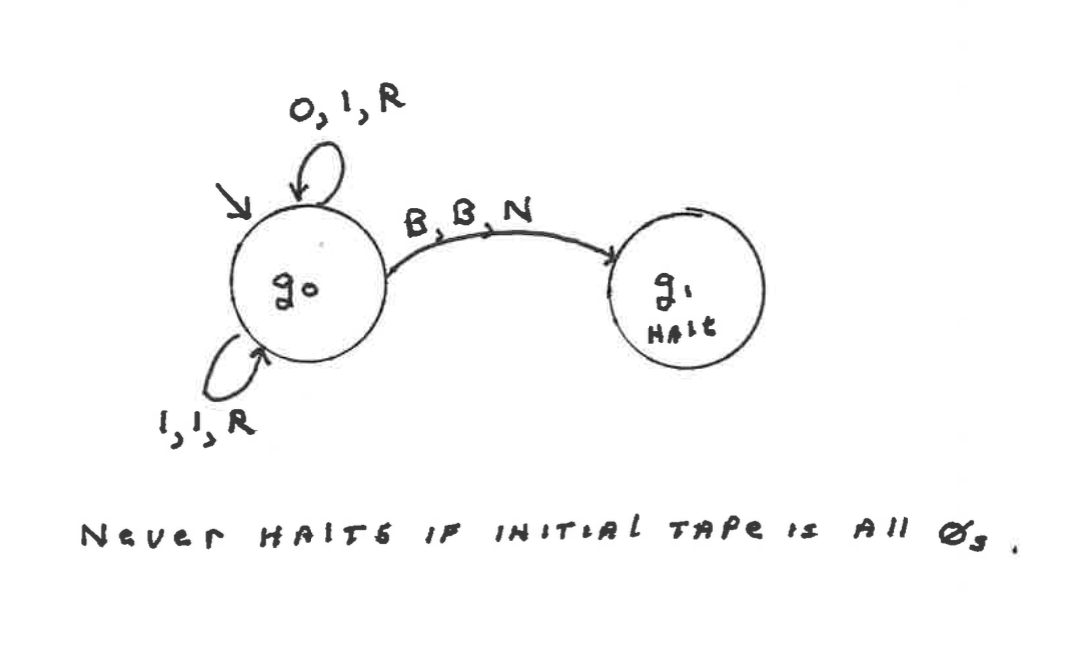 0, 1, R
B, B, N
q0
q1
HAlt
1, 1, R
Never HAlTS IF INITIAL TAPe IS All Øs.